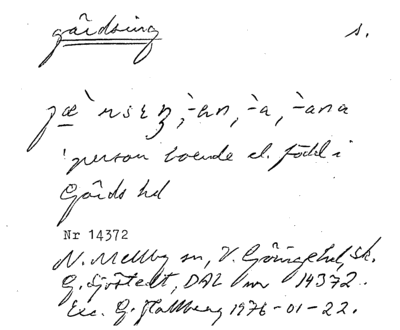 gärdsing s.
'person boende el. född i
Gärds hd
Nr 14372
N. Mellby sn, V. Göinge hd, Sk.
G. Sjöstedt, DAL nr 14372.
Exc. G. Hallberg 1976-01-22.